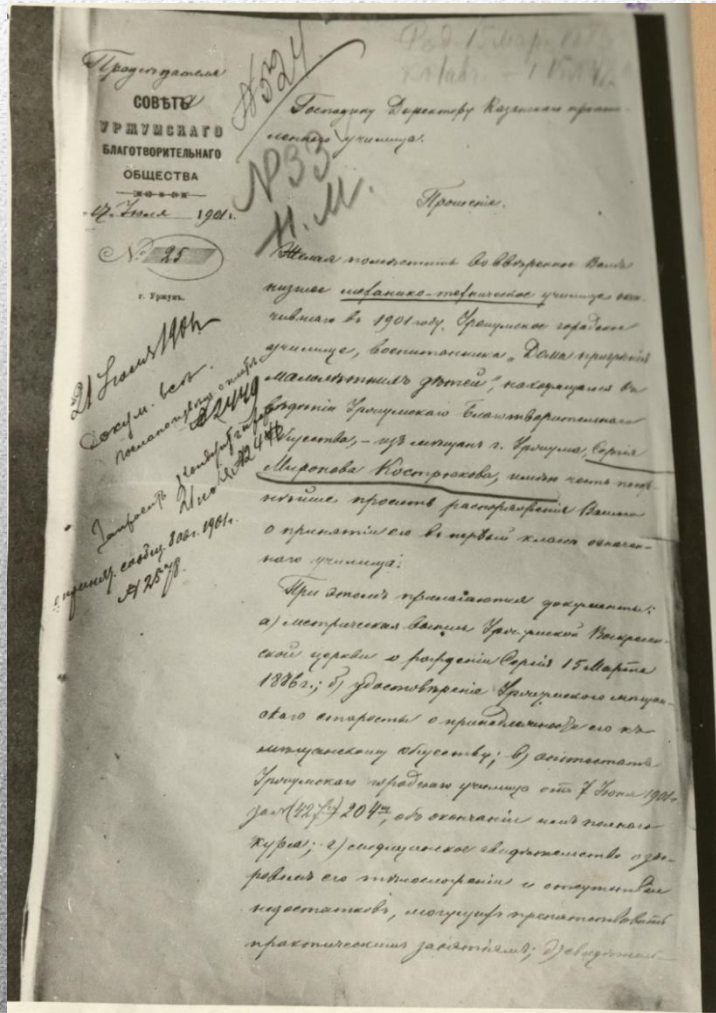 Председателя
СОВѢТА
УРЖУМСКАГО
БЛАГОТВОРИТЕЛЬНАГО
ОБЩЕСТВА
17 Іюля 1901 г.
№ 25
г. Уржумъ.
№524
№33
Н.М.
21 Іюля 1901
Докум. всѣ
№2449
21 іюля №2448
сообщ. 8 авг. 1901 г.
№2578.
Господину Директору Казанскаго промыш-
леннаго училища.
Прошеніе.
Желая помѣстить во ввѣренное Вамъ
низшее механико-техническое училище окон-
чившаго въ 1901 году Уржумское городское
училище, воспитанника „Дома призрѣнія
малолѣтнихъ дѣтей", находящагося въ
вѣдѣніи Уржумскаго Благотворительнаго
Общества, – изъ мѣщанъ г. Уржума, Сергѣя
Миронова Кострикова, имѣю честь покор-
нѣйше просить распоряженія Вашего
о принятіи его въ первый классъ означен-
наго училища.
При этомъ прилагаются документы:
а) метрическая выпись Уржумской Воскресен-
ской церкви о рожденіи Сергѣя 15 Марта
1886 г.; б) удостовѣреніе Уржумскаго мѣщан-
скаго старосты о принадлежности его къ
мѣщанскому обществу; в) аттестатъ
Уржумскаго городского училища отъ 7 Іюня 1901 г.
за № 204, объ окончаніи имъ полнаго
курса; г) медицинское свидѣтельство о здо-
ровомъ его тѣлосложеніи и отсутствіи
недостатковъ, могущихъ препятствовать
практическимъ занятіямъ; д) свидѣтель-